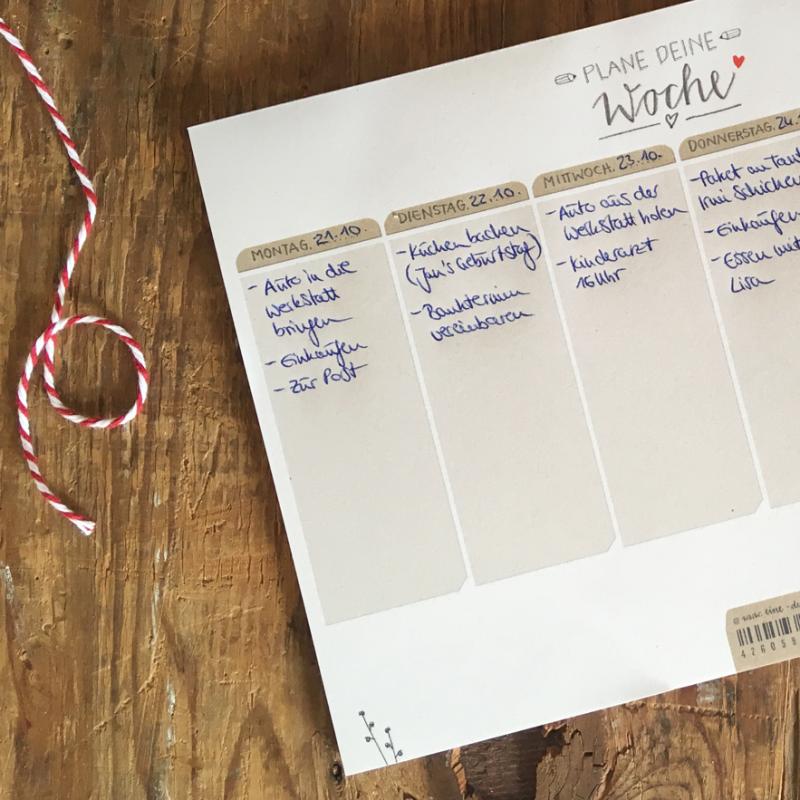 PLANE DEINE
Woche
MONTAG. 21.10.
- Auto in die
Werkstatt
bringen
- Einkaufen
- Zur Post
DIENSTAG. 22.10.
- Kuchen backen
(Jun's Geburtstag)
- Banktermin
vereinbaren
MITTWOCH. 23.10.
- Auto aus der
Werkstatt holen
- Kinderarzt
16 Uhr
DONNERSTAG. 24.
- Paket an Tante
Irmi schicken
- Einkaufen
- Essen mit
Lisa
426059